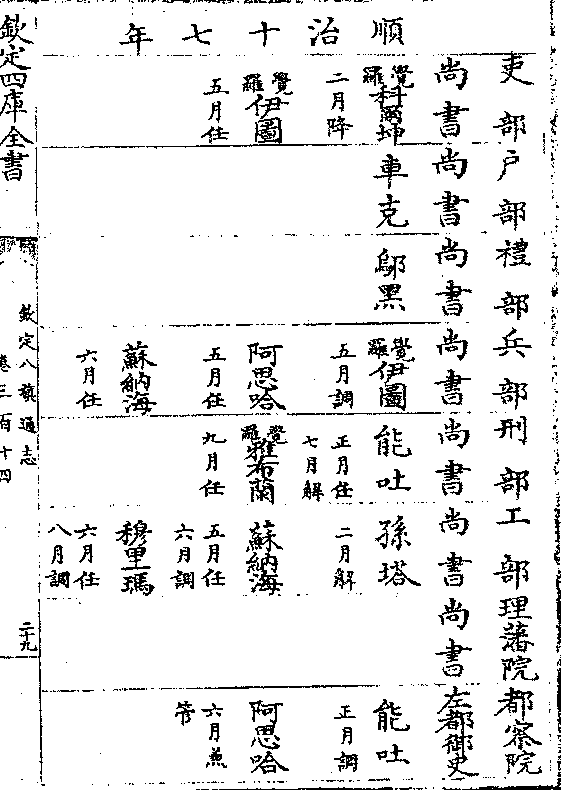 順治十七年
吏部尚書 覺羅科爾坤 二月降 覺羅伊圖 五月任
戶部尚書 車克
禮部尚書 鄔黑
兵部尚書 覺羅伊圖 五月調 阿思哈 五月任 蘇納海 六月任
刑部尚書 能吐 正月任 七月解 覺羅雅布蘭 九月任
工部尚書 孫塔 二月解 蘇納海 五月任 六月調 穆里瑪 六月任 八月調
理藩院尚書
都察院左都御史 能吐 正月調 阿思哈 六月兼管
欽定四庫全書
欽定八旗通志
卷三百十四
二十九